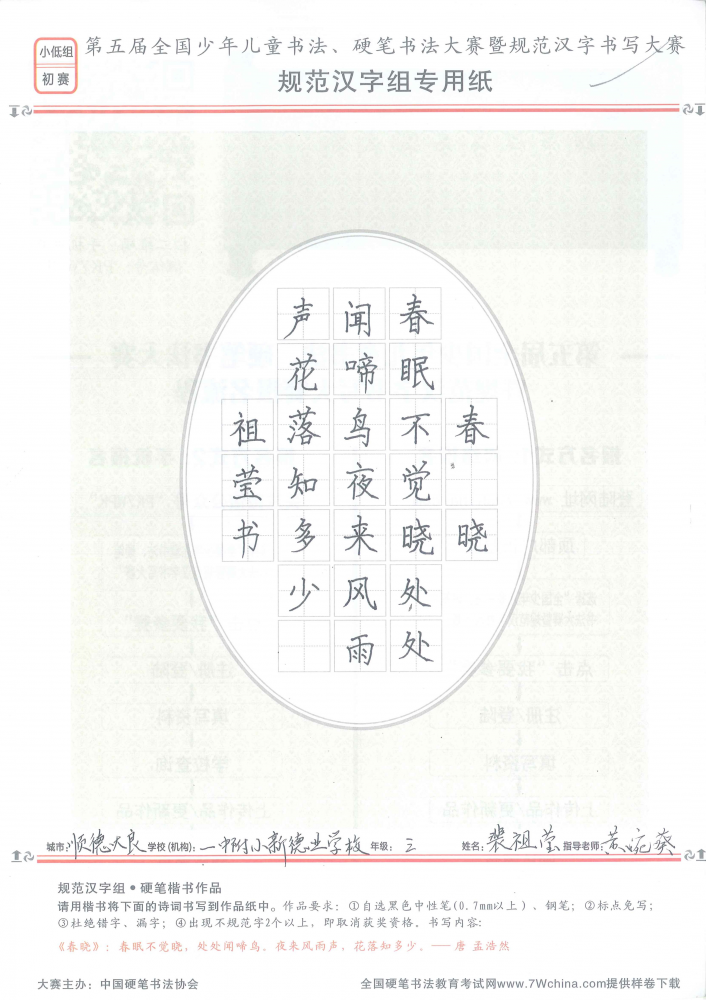 小低组
初赛
第五届全国少年儿童书法、硬笔书法大赛暨规范汉字书写大赛
规范汉字组专用纸
春晓
春眠不觉晓处处
闻啼鸟夜来风雨
声花落知多少
祖莹书
城市:顺德大良 学校(机构):一中附小新德业学校 年级:三 姓名:裴祖莹 指导老师:黄婉葵
规范汉字组●硬笔楷书作品
请用楷书将下面的诗词书写到作品纸中。作品要求:①自选黑色中性笔(0.7mm以上)、钢笔;②标点免写;
③杜绝错字、漏字;④出现不规范字2个以上,即取消获奖资格。书写内容:
《春晓》:春眠不觉晓,处处闻啼鸟。夜来风雨声,花落知多少。——唐 孟浩然
大赛主办:中国硬笔书法协会
全国硬笔书法教育考试网www.7Wchina.com提供样卷下载